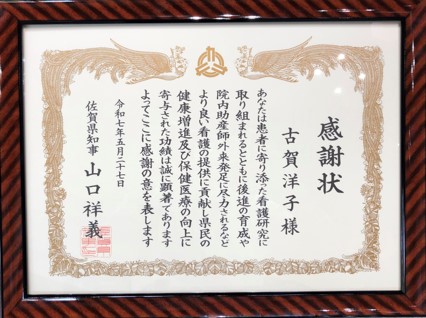 感謝状
古賀洋子様
あなたは患者に寄り添った看護研究に
取り組まれるとともに後進の育成や
院内助産師外来発足に尽力されるなど
より良い看護の提供に貢献し県民の
健康増進及び保健医療の向上に
寄与された功績は誠に顕著であります
よってここに感謝の意を表します
令和七年五月二十七日
佐賀県知事 山口祥義